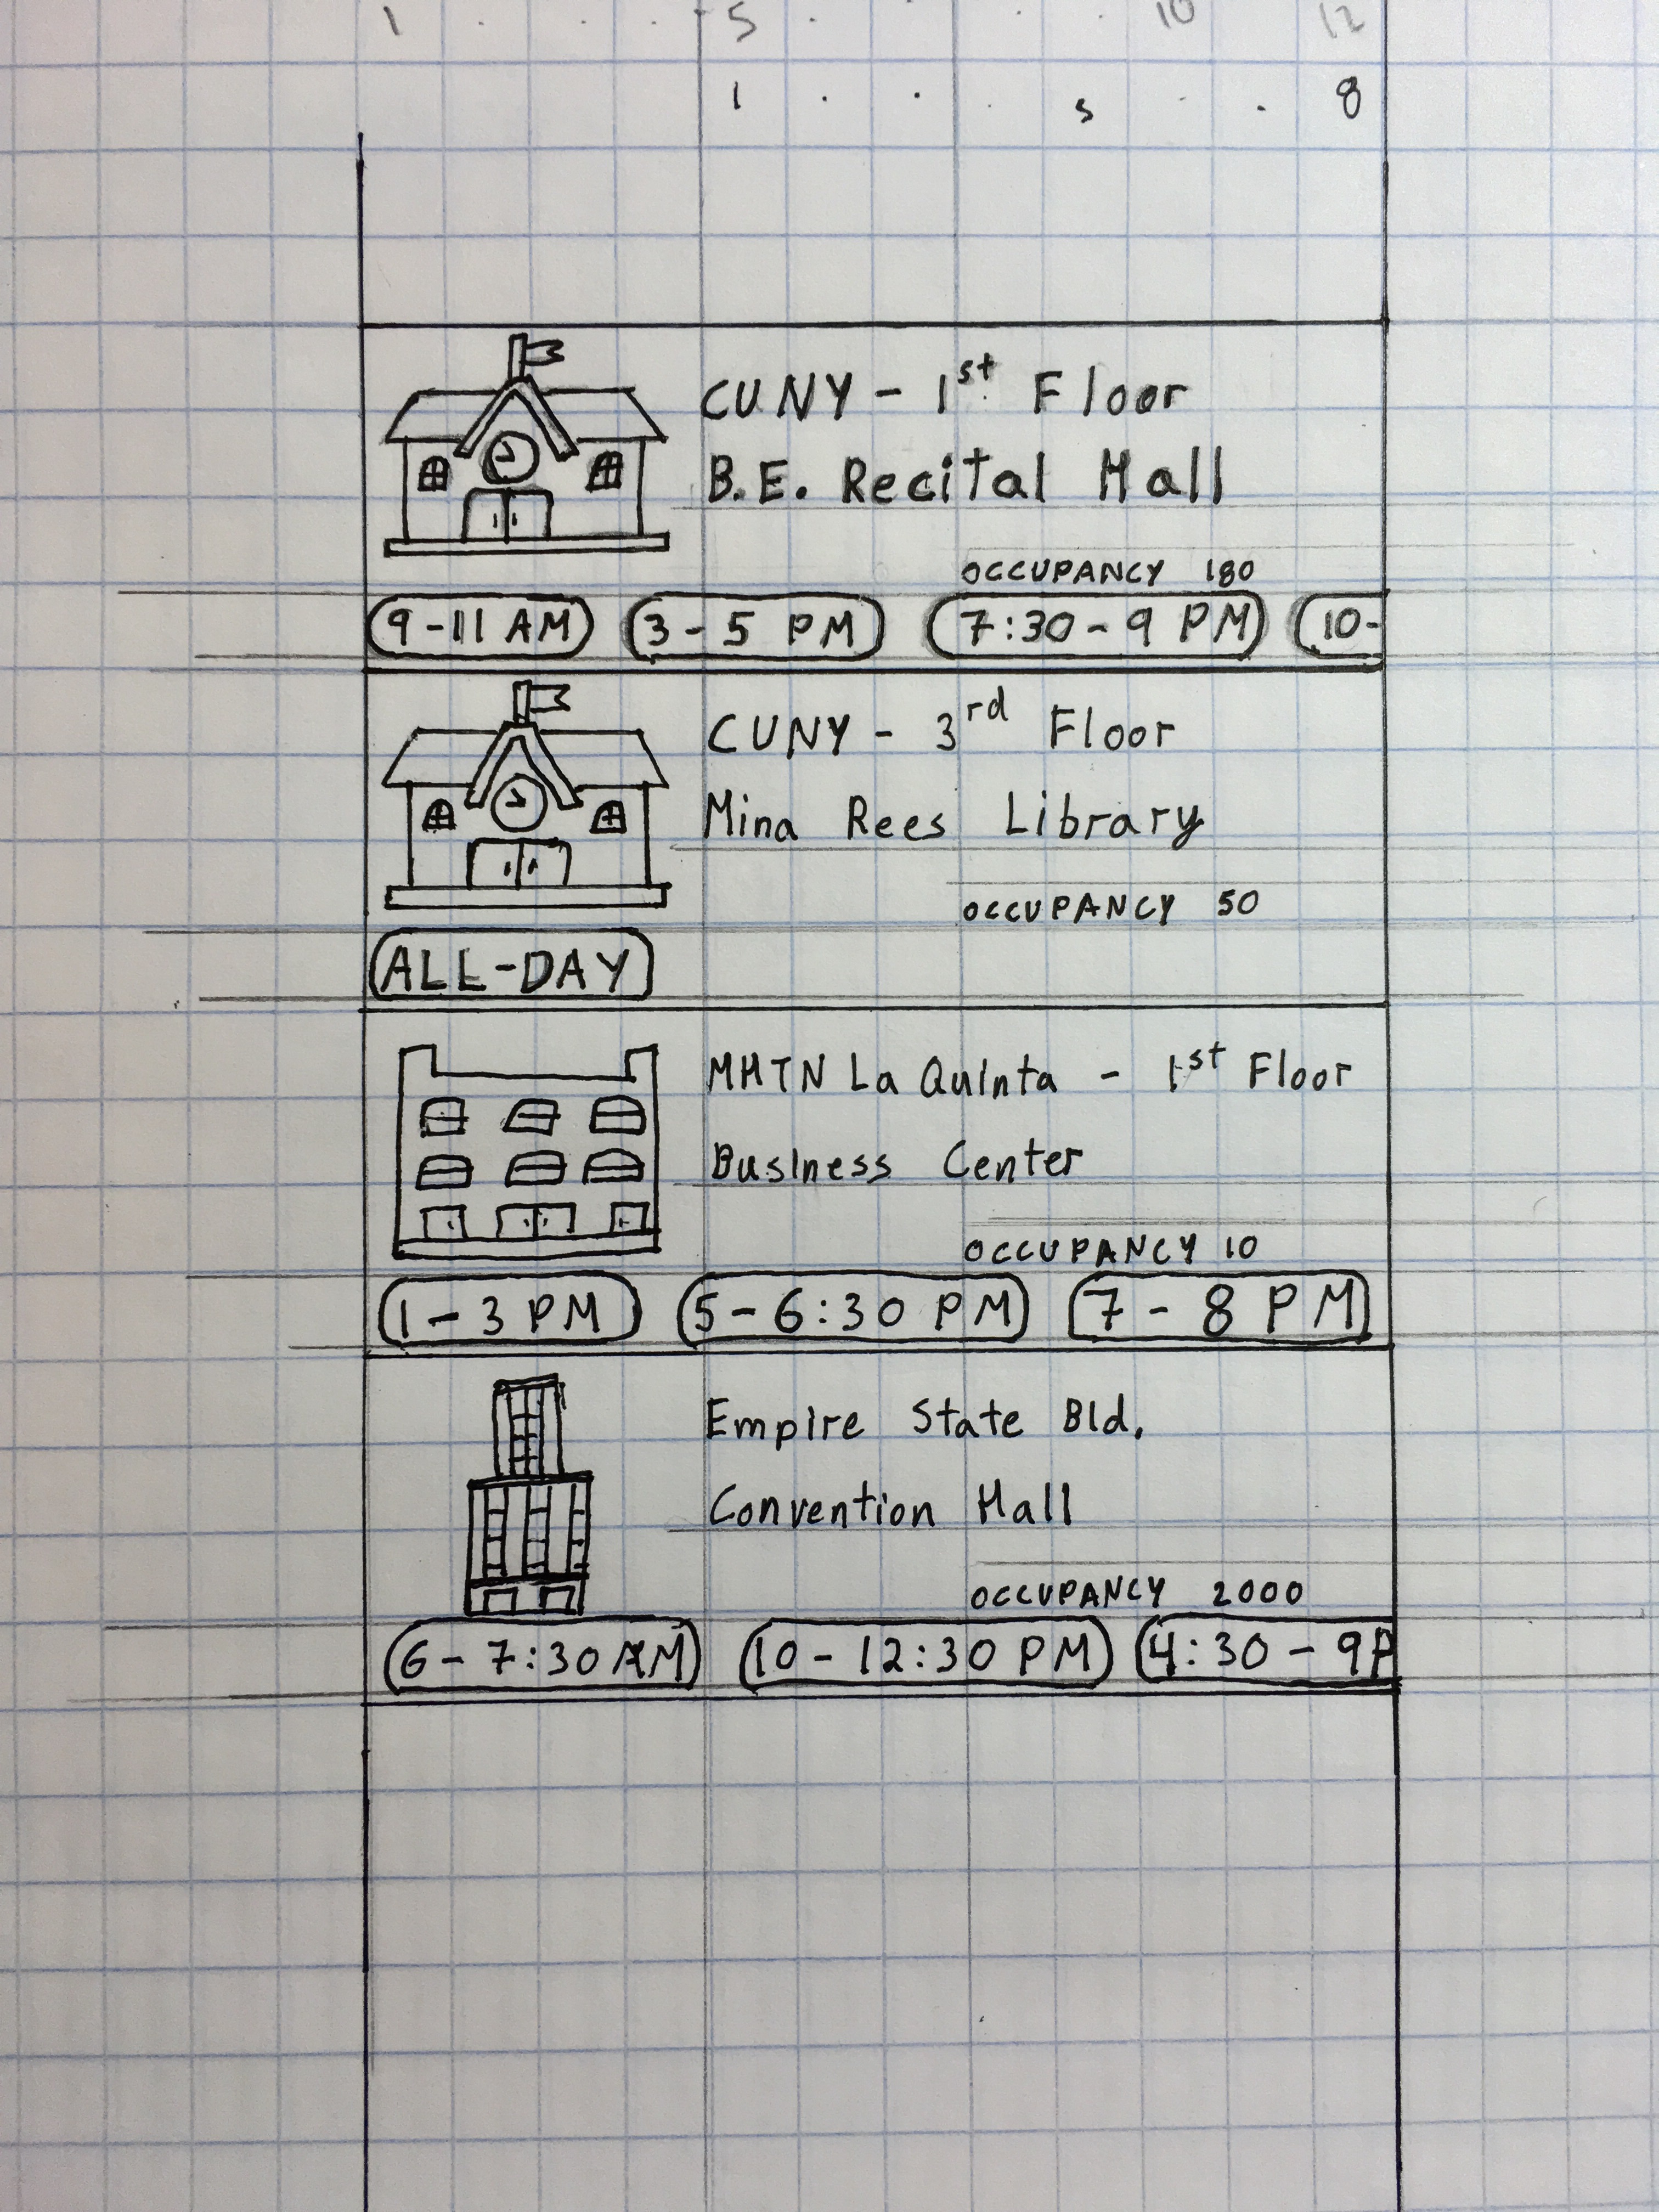 1 . . . 5 . . . 10 12
1 . . . 5 . . 8
CUNY - 1st Floor
B.E. Recital Hall
OCCUPANCY 180
9-11 AM 3-5 PM 7:30-9 PM 10-
CUNY - 3rd Floor
Mina Rees Library
OCCUPANCY 50
ALL-DAY
MHTN La Quinta - 1st Floor
Business Center
OCCUPANCY 10
1-3 PM 5-6:30 PM 7-8 PM
Empire State Bld.
Convention Hall
OCCUPANCY 2000
6-7:30 AM 10-12:30 PM 4:30-9P